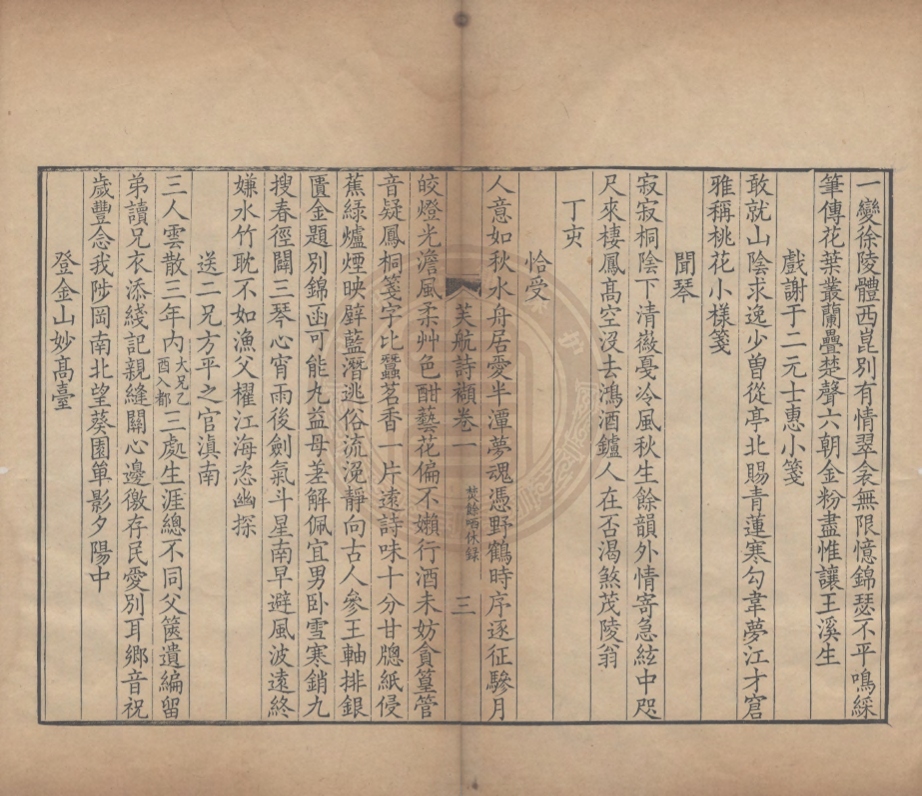 一變徐陵體西崑別有情翠衾無限憶錦瑟不平鳴綵
筆傳花葉叢蘭疊楚聲六朝金粉盡惟讓玉溪生
戲謝于二元士惠小箋
敢就山陰求逸少曾從亭北賜青蓮寒勾韋夢江才窘
雅稱桃花小樣箋
聞琴
寂寂桐陰下清徽戞冷風秋生餘韻外情寄急絃中咫
尺來棲鳳高空沒去鴻酒鑪人在否渴煞茂陵翁
丁亥
恰受
人意如秋水舟居愛半潭夢魂憑野鶴時序逐征驂月
芙航詩襭卷一 焚餘哂休錄 三
皎燈光澹風柔艸色酣藝花偏不嬾行酒未妨貪篁管
音疑鳳桐箋字比蠶茗香一片遠詩味十分甘牕紙侵
蕉綠爐煙映壁藍潛逃俗流浼靜向古人參玉軸排銀
匱金題別錦函可能丸益母差解佩宜男卧雪寒銷九
搜春徑闢三琴心宵雨後劍氣斗星南早避風波遠終
嫌水竹耽不如漁父櫂江海恣幽探
送二兄方平之官滇南
三人雲散三年內大兄乙酉入都三處生涯總不同父篋遺編留
弟讀兄衣添綫記親縫關心邊徼存民愛別耳鄉音祝
歲豐念我陟岡南北望葵園單影夕陽中
登金山妙高臺